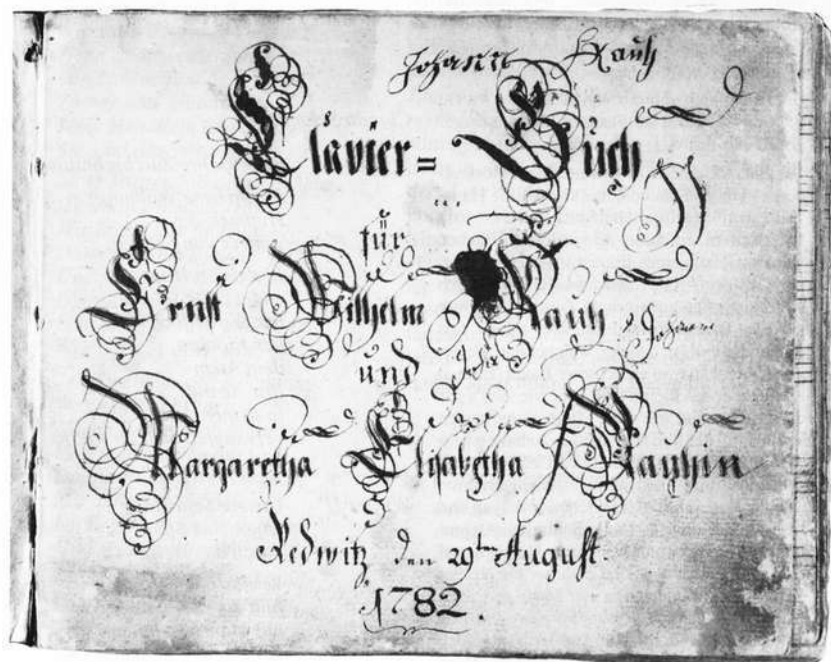 Johann Rauh
Clavier= Buch
für
Ernst Wilhelm Rauh
Johann
und
Margaretha Elisabetha Rauhin
Redwitz den 29ten August.
1782.